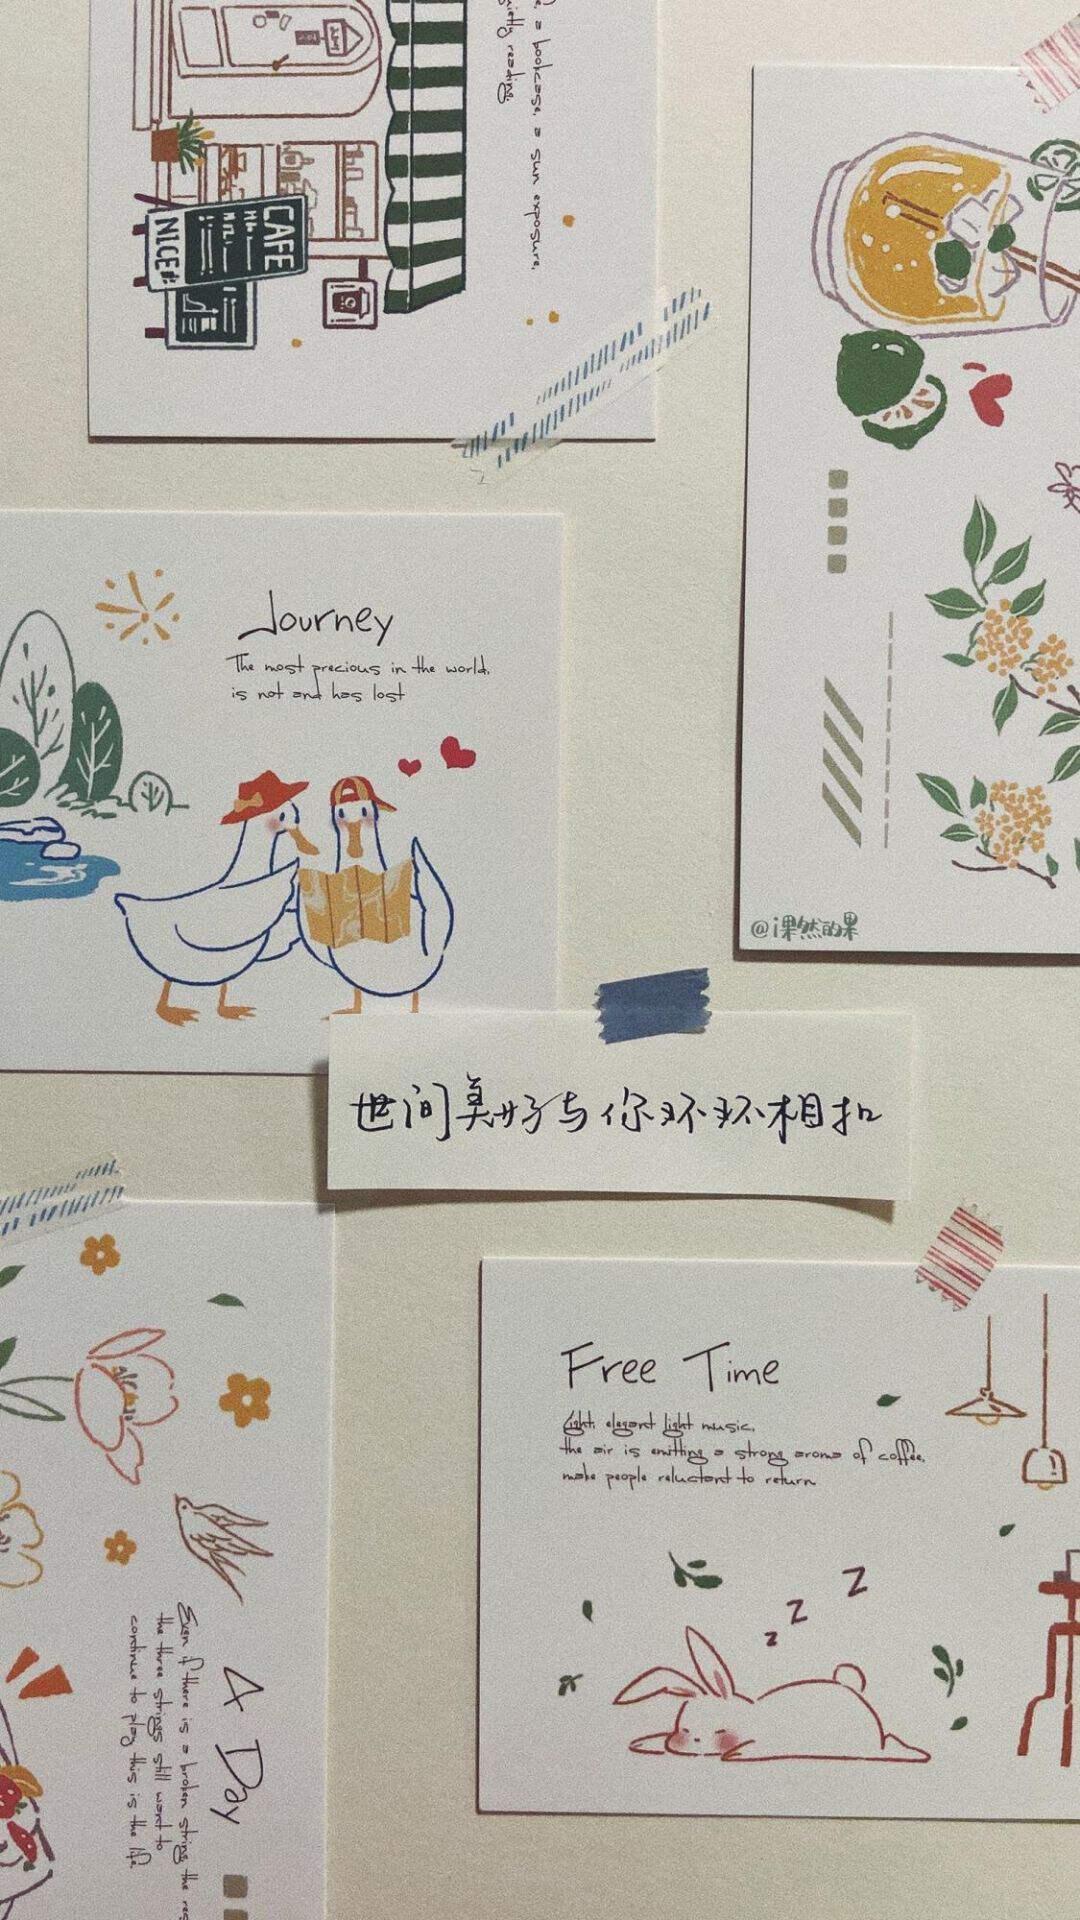 a bookcase, a sun exposure,
quietly reading.
CAFE
NICE
Journey
The most precious in the world,
is not and has lost
@i果然的果
世间美好与你环环相扣
Free Time
Light, elegant light music,
the air is emitting a strong aroma of coffee,
make people reluctant to return
Z
Z
Z
A Day
Even if there is a broken string the res
the three strings still want to
continue to play this is the life.